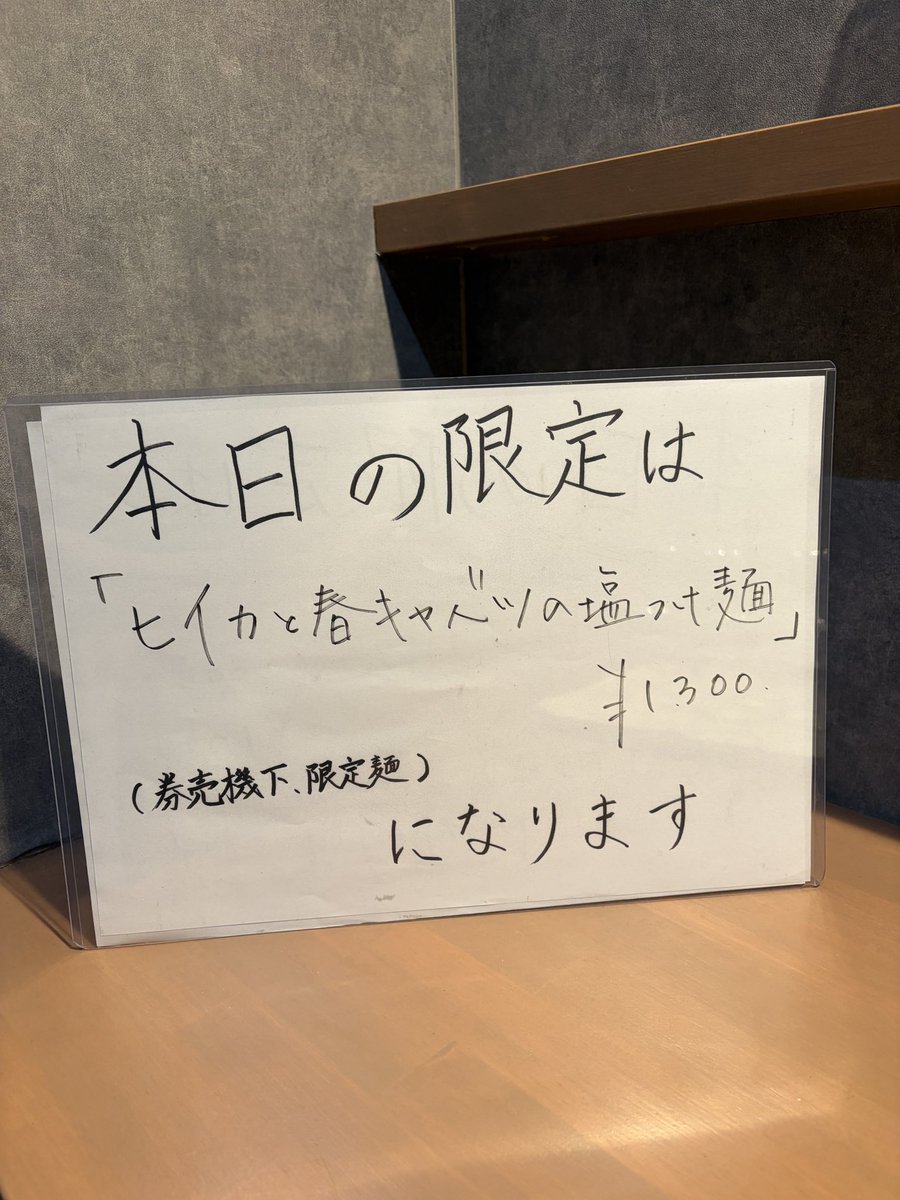 本日の限定は
「ヒイカと春キャベツの塩つけ麺」
¥1300.
(券売機下、限定麺)
になります